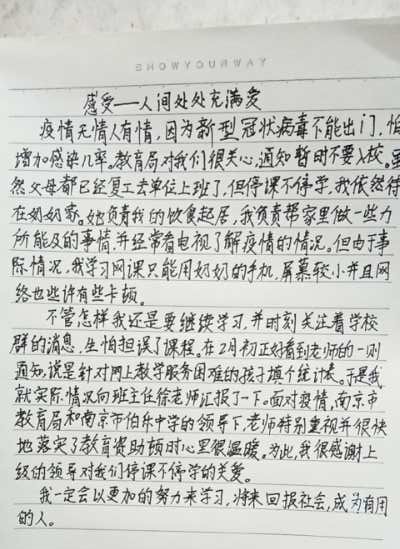 SHOWYOURWAY
感受——人间处处充满爱
疫情无情人有情,因为新型冠状病毒不能出门,怕
增加感染几率。教育局对我们很关心,通知暂时不要入校。虽
然父母都已经复工去单位上班了,但停课不停学,我依然待
在奶奶家。她负责我的饮食起居,我负责帮家里做一些力
所能及的事情,并经常看电视了解疫情的情况。但由于事
际情况,我学习网课只能用奶奶的手机,屏幕较小并且网
络也些许有些卡顿。
不管怎样我还是要继续学习,并时刻关注着学校
群的消息,生怕担误了课程。在2月初正好看到老师的一则
通知,说是针对网上教学服务困难的孩子填个统计表。于是我
就实际情况向班主任徐老师汇报了一下。面对疫情,南京市
教育局和南京市伯乐中学的领导下,老师特别重视并很快
地落实了教育资助顿时心里很温暖。为此,我很感谢上
级的领导对我们停课不停学的关爱。
我一定会以更加的努力来学习,将来回报社会,成为有用
的人。